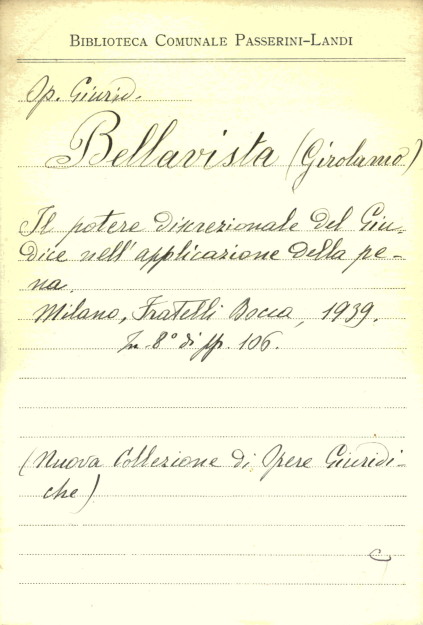 BIBLIOTECA COMUNALE PASSERINI-LANDI
Op. Giurid.
Bellavista (Girolamo)
Il potere discrezionale del Giu-
dice nell'applicazione della pe-
na.
Milano, Fratelli Bocca, 1939.
In-8° di pp. 106.
(Nuova Collezione di Opere Giuridi-
che)
C